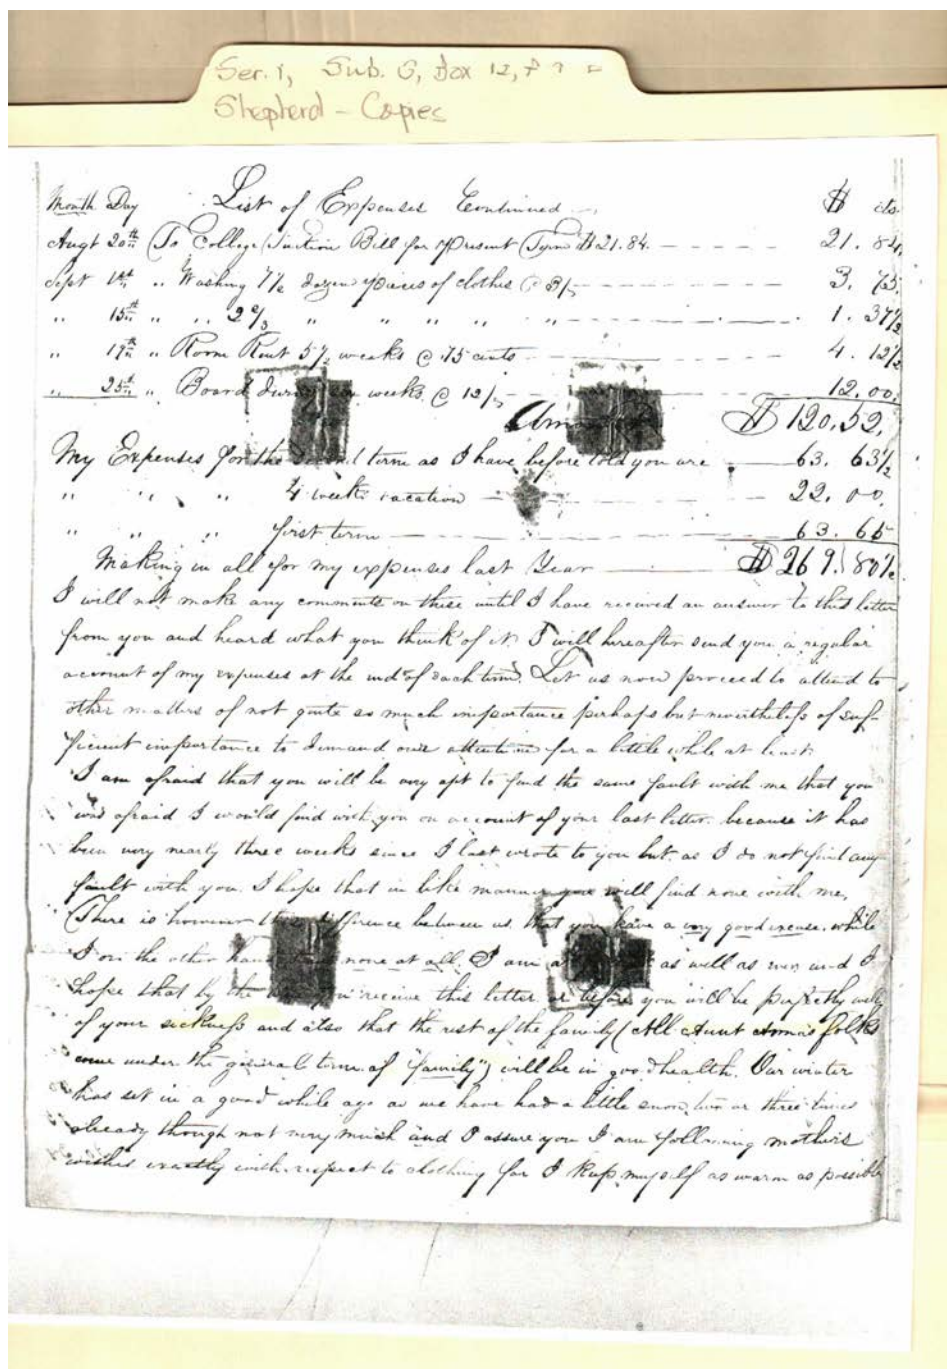 Ser. 1, Sub. G, Box 12, F
Shepherd - Copies
Month Day List of Expenses Continued $ cts.
Augt 20th To College Tuition Bill for Present Term $21.84. 21. 84.
Sept 1st " Washing 7½ dozen pieces of clothes @ 3. 75.
" 15th " " 2 " " " " " 1. 37½
" 19th " Room Rent 5½ weeks @ 75 cents 4. 12½
" 25th " Board during weeks @ 12/ 12.00.
$120.52.
My Expenses for the term as I have before told you are 63. 63½
" " " 4 weeks vacation 22. 00.
" " " first term 63. 65
Making in all for my expenses last Year $269. 80½
I will not make any comments on these until I have received an answer to this letter
from you and heard what you think of it. I will hereafter send you a regular
account of my expenses at the end of each term. Let us now proceed to attend to
other matters of not quite so much importance perhaps but nevertheless of suf-
ficient importance to demand our attention for a little while at least.
I am afraid that you will be very apt to find the same fault with me that you
was afraid I would find with you on account of your last letter. because it has
been very nearly three weeks since I last wrote to you but as I do not find any
fault with you. I hope that in like manner you will find none with me.
There is however this difference between us that you have a very good excuse. while
I on the other hand none at all. I am as well as ever and I
hope that by the you receive this letter or before you will be perfectly well
of your sickness and also that the rest of the family (All Aunt Anna's folks
come under the general term of "family") will be in good health. Our winter
has set in a good while ago as we have had a little snow two or three times
already though not very much and I assure you I am following mother's
wishes exactly with respect to clothing for I keep myself as warm as possible